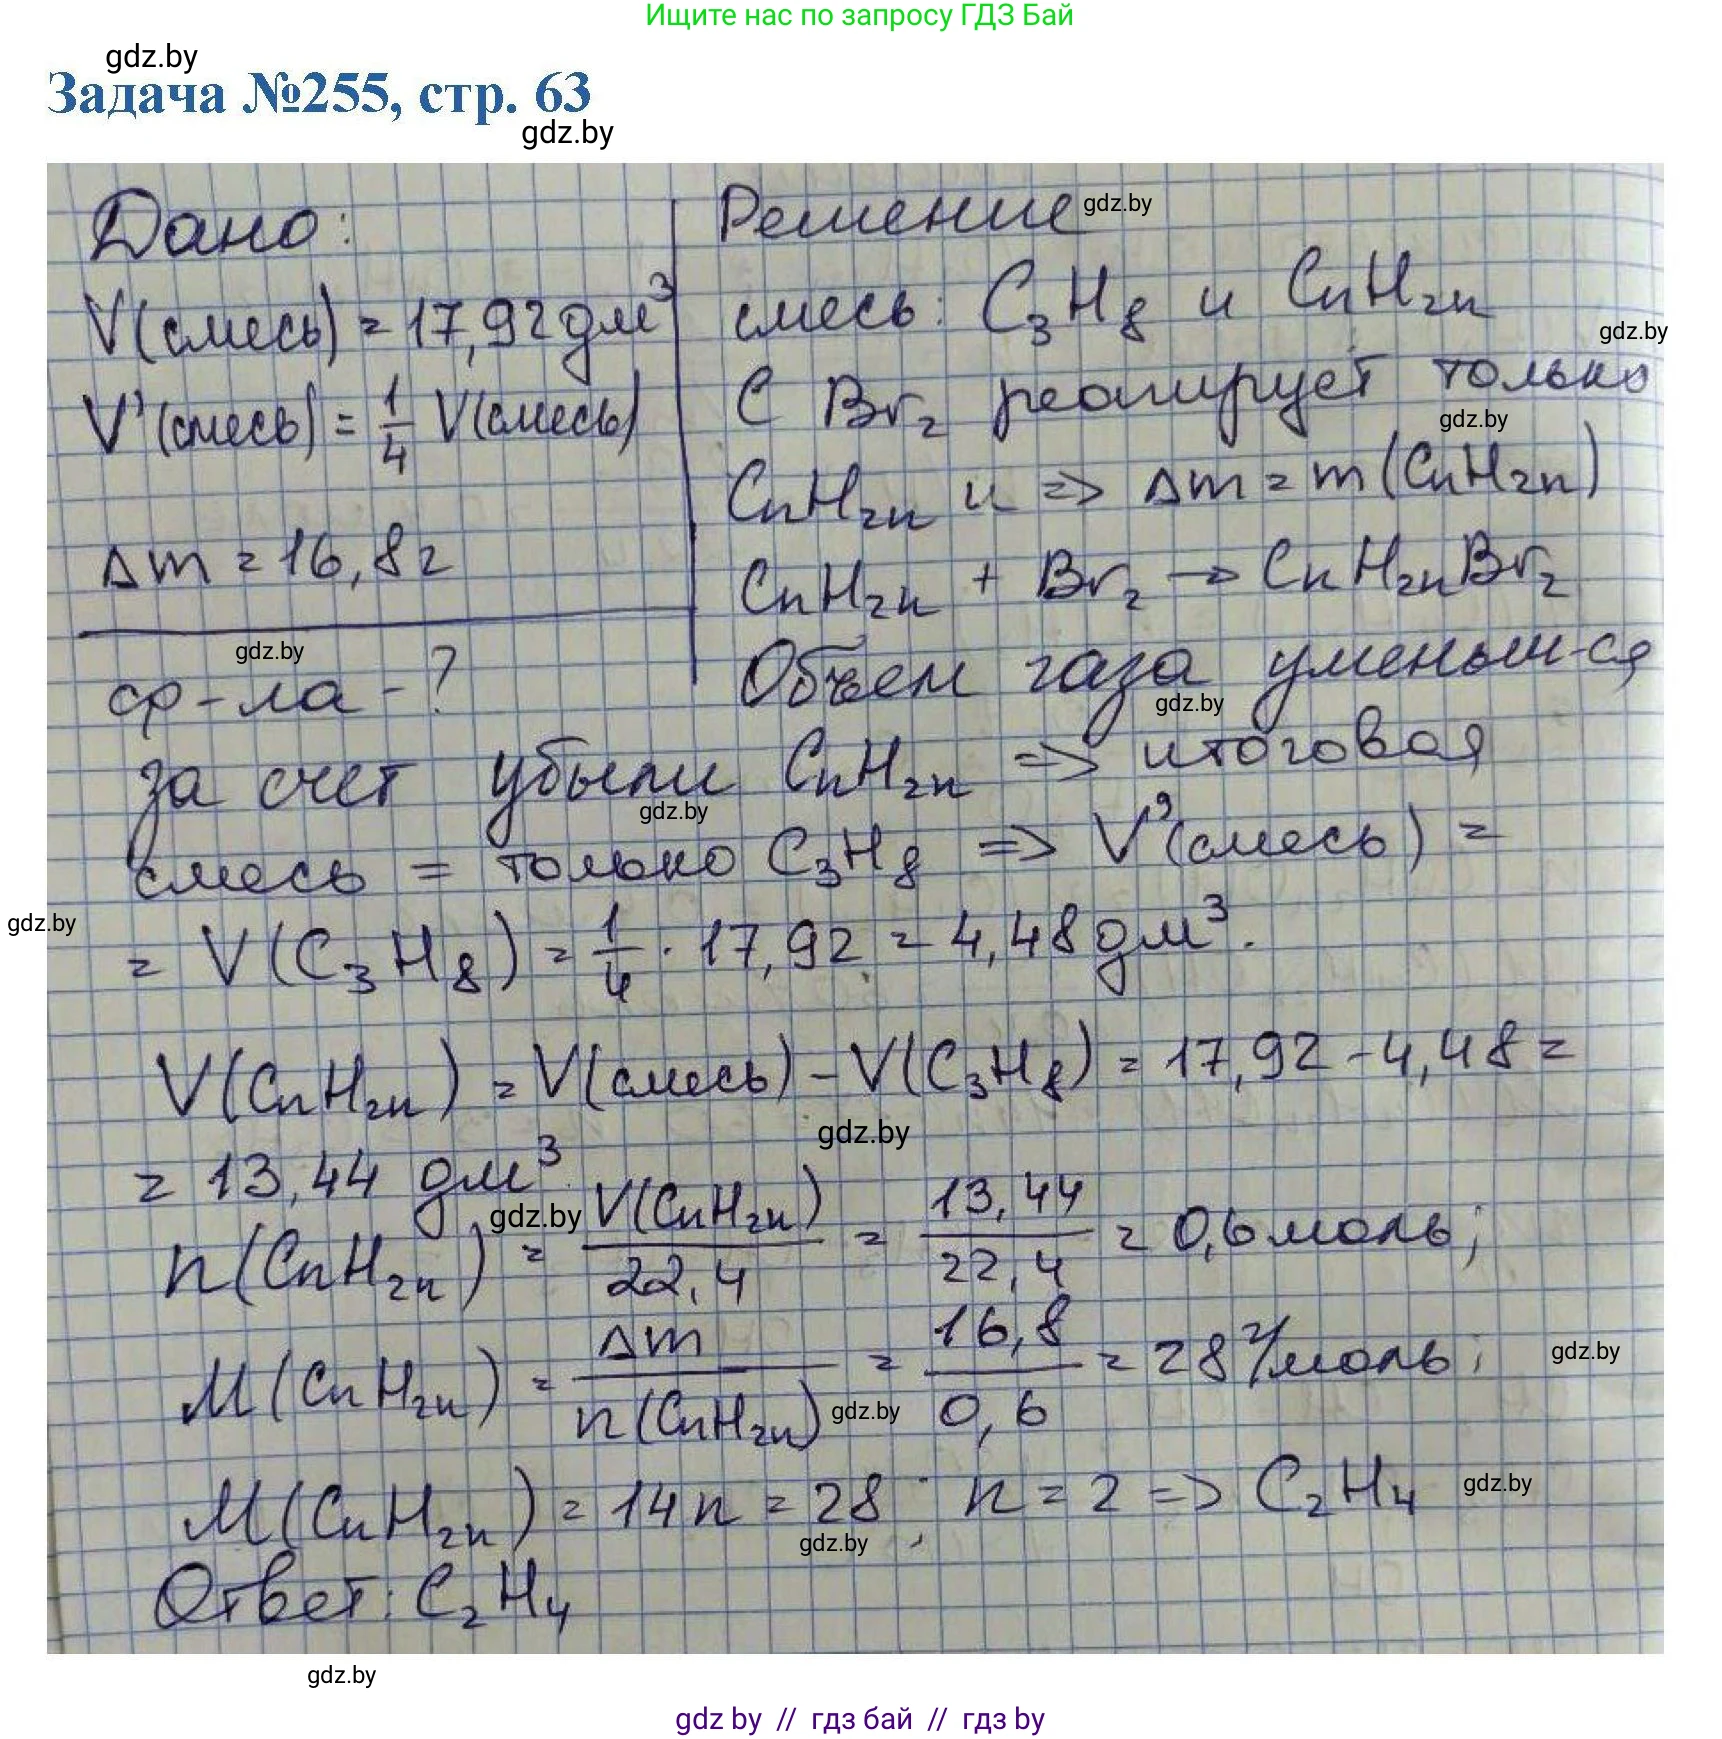 Ищите нас по запросу ГДЗ Бай
gdz.by
Задача №255, стр. 63
gdz.by
Дано:
V(смесь) = 17,92 дм³
V'(смесь) = 1/4 V(смесь)
Δm = 16,8 г
gdz.by
ф-ла - ?
Решение gdz.by
смесь: C₃H₈ и CnH₂n
gdz.by
С Br₂ реагирует только
gdz.by
CnH₂n и => Δm = m(CnH₂n)
CnH₂n + Br₂ → CnH₂nBr₂
Объем газа уменьш-ся
gdz.by
за счет убыли CnH₂n => итоговая
gdz.by
смесь = только C₃H₈ => V'(смесь) =
gdz.by
= V(C₃H₈) = 1/4 · 17,92 = 4,48 дм³.
V(CnH₂n) = V(смесь) - V(C₃H₈) = 17,92 - 4,48 =
gdz.by
= 13,44 дм³
gdz.by
n(CnH₂n) = V(CnH₂n)/22,4 = 13,44/22,4 = 0,6 моль;
M(CnH₂n) = Δm/n(CnH₂n) = 16,8/0,6 = 28 г/моль;
gdz.by
gdz.by
M(CnH₂n) = 14n = 28; n = 2 => C₂H₄
gdz.by
gdz.by
Ответ: C₂H₄
gdz.by
gdz by // гдз бай // гдз by